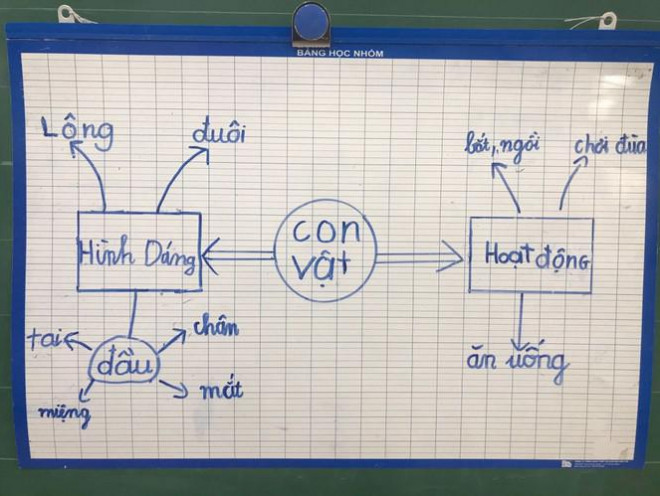 BẢNG HỌC NHÓM
Lông
đuôi
bắt, ngồi
chơi đùa
Hình Dáng
con
vật
Hoạt động
tai
chân
đầu
miệng
mắt
ăn uống